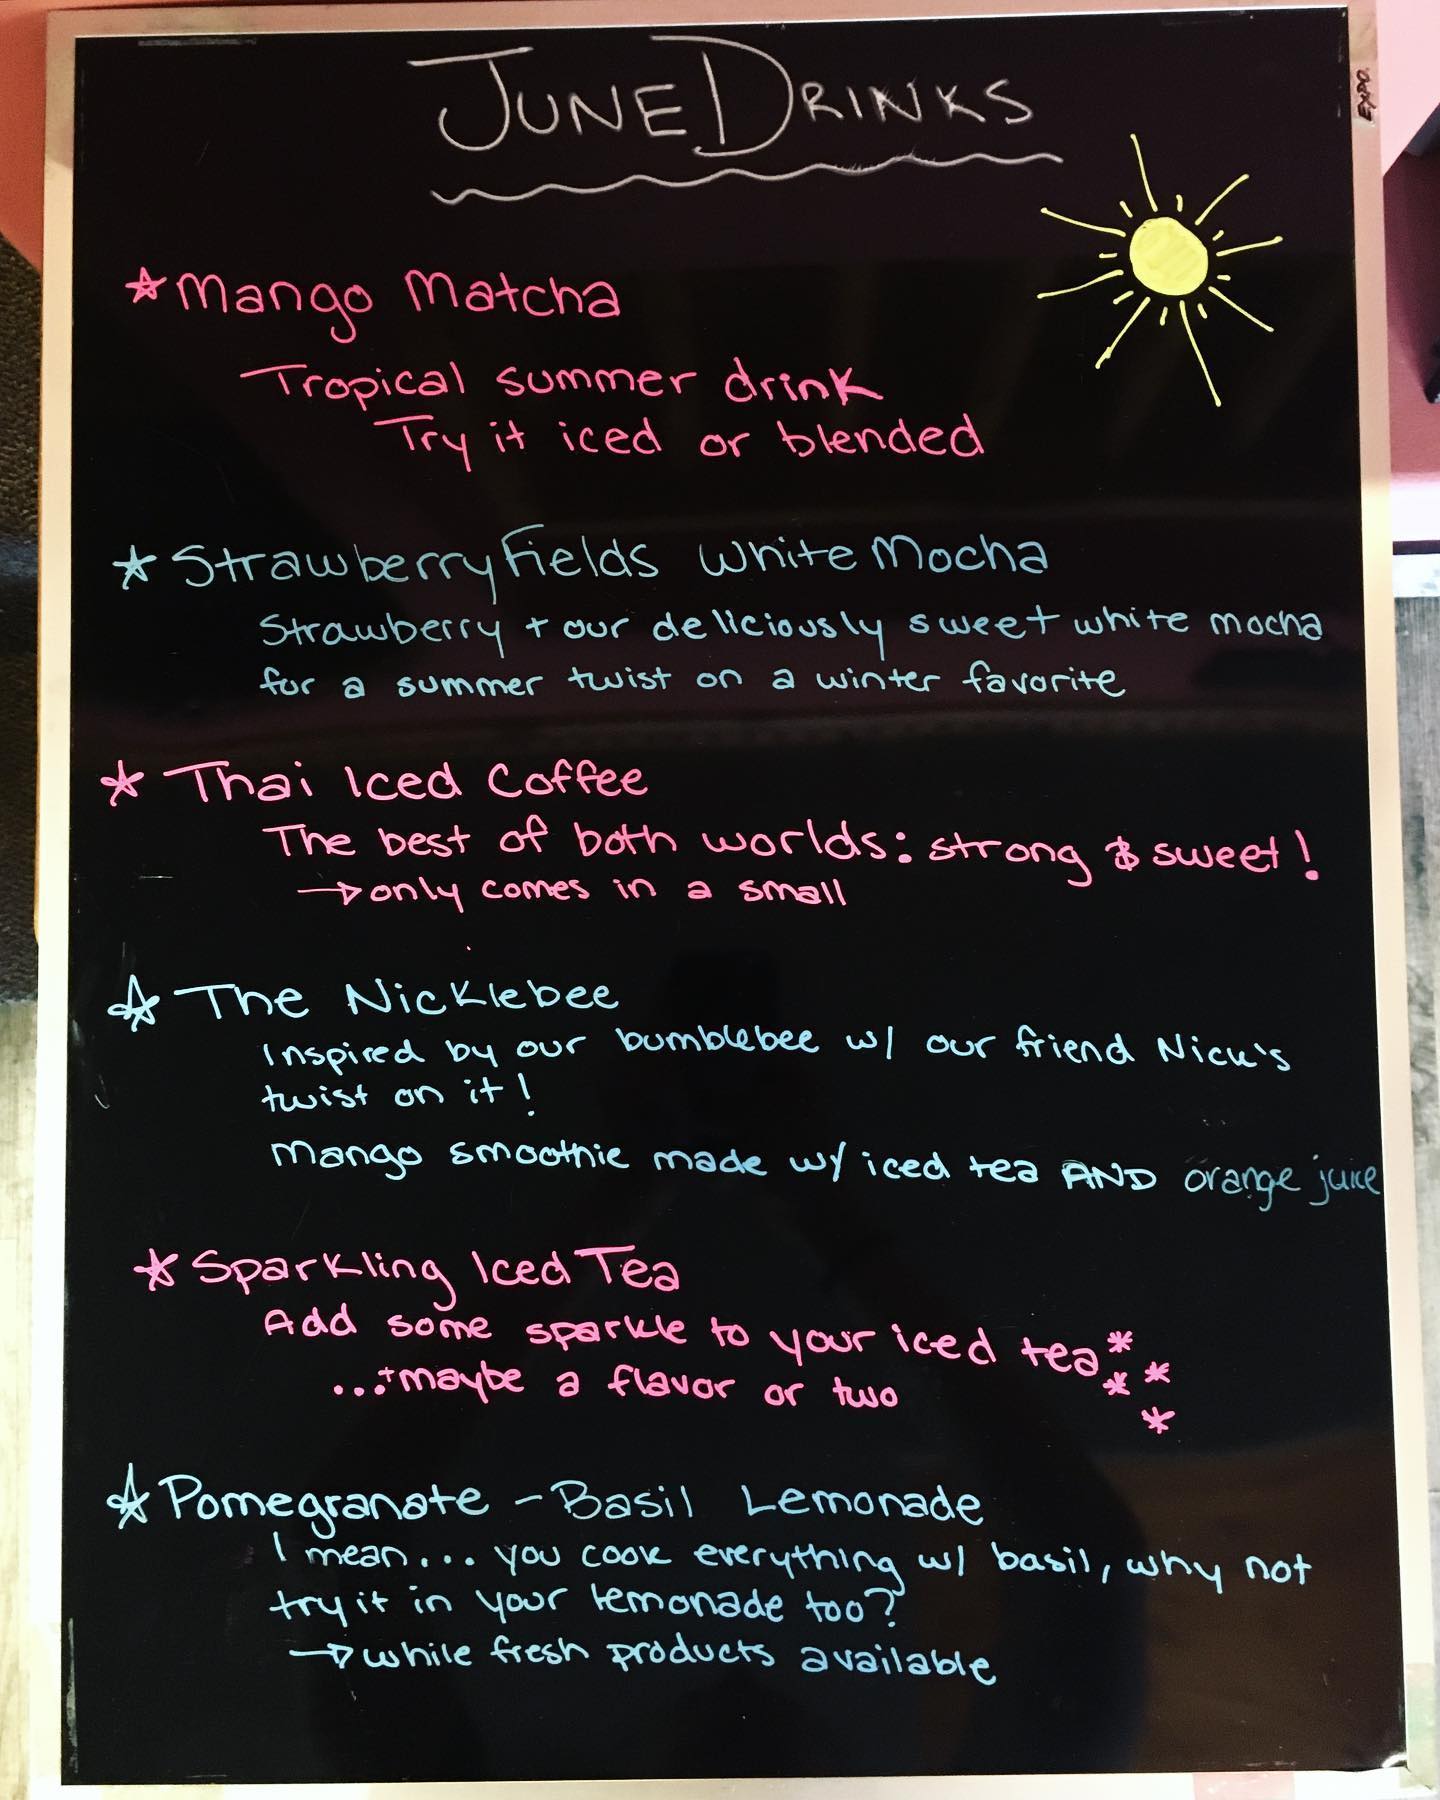 JUNE DRINKS
EXPO
* Mango Matcha
Tropical summer drink
Try it iced or blended
* Strawberry Fields White Mocha
Strawberry + our deliciously sweet white mocha
for a summer twist on a winter favorite
* Thai Iced Coffee
The best of both worlds: strong & sweet!
→ only comes in a small
* The Nicklebee
Inspired by our bumblebee w/ our friend Nick's
twist on it!
Mango smoothie made w/ iced tea AND orange juice
* Sparkling Iced Tea
Add some sparkle to your iced tea
...+maybe a flavor or two
* Pomegranate - Basil Lemonade
I mean... you cook everything w/ basil, why not
try it in your lemonade too?
→ while fresh products available